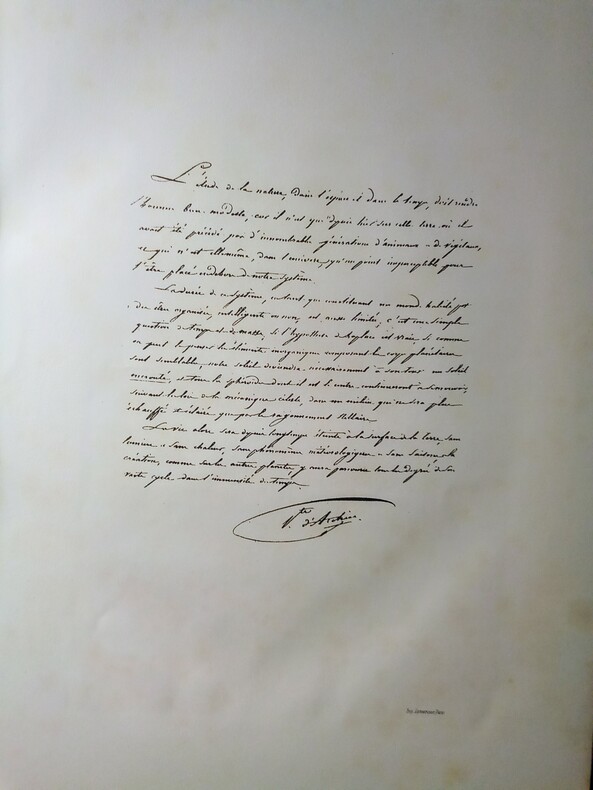 L'étude de la nature, dans l'espace et dans le temps, doit rendre
l'homme bien modeste, car il n'est que d'hier sur cette terre où il
avait été précédé par d'innombrables générations d'animaux et de végétaux,
ce qui n'est elle même, dans l'univers, qu'un point imperceptible pour
l'être placé en dehors de notre système.
La durée de ce système, en tant que constituant un monde habité par
des êtres organisés, intelligents ou non, est aussi limitée, c'est une simple
question de temps et de masse, si l'hypothèse de Laplace est vraie, si comme
on peut le penser les éléments inorganiques composant les corps planétaires
sont semblables, notre soleil deviendra nécessairement à son tour un soleil
encrouté, et tous les sphéroïdes dont il est le centre continueront à se mouvoir,
suivant les lois de la mécanique céleste, dans un milieu qui ne sera plus
échauffé et éclairé que par le rayonnement stellaire
La vie alors sera depuis longtemps éteinte à la surface de la terre, sans
lumière et sans chaleur, sans phénomènes météorologiques et sans saisons et la
création, comme sur les autres planètes, y aura parcouru tous les degrés de son
vaste cycle dans l'immensité des temps.
Vte d'Archiac.